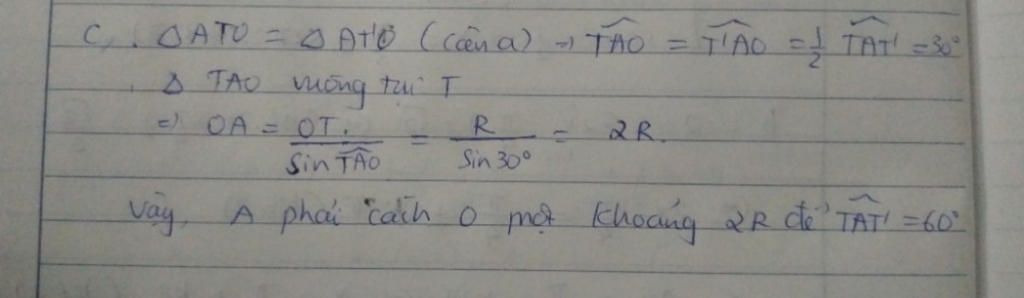 c, . △ATO = △AT'O (câu a) → T̂AO = T̂'AO = 1/2 T̂AT' = 30°
. △ TAO vuông tại T
⇒ OA = OT / sin T̂AO = R / sin 30° = 2R.
Vậy, A phải cách O một khoảng 2R để T̂AT' = 60°